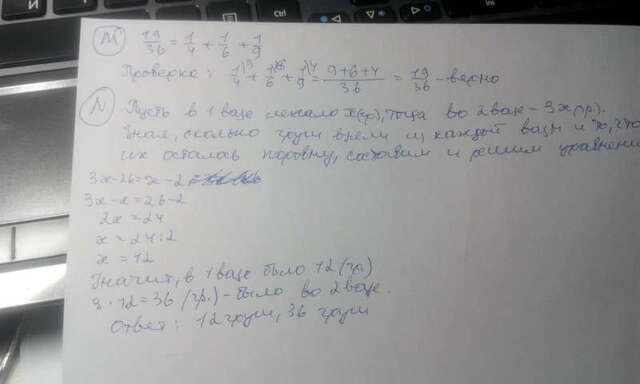 М) 19/36 = 1/4 + 1/6 + 1/9
Проверка: 1/4 + 1/6 + 1/9 = 9+6+4/36 = 19/36 - верно
N) Пусть в 1 вазе лежало x(гр), тогда во 2 вазе - 3x(гр).
Зная, сколько груш взяли из каждой вазы и то, что
их осталось поровну, составим и решим уравнение
3x-26=x-2
3x-x=26-2
2x=24
x=24:2
x=12
Значит, в 1 вазе было 12 (гр)
3·12=36 (гр.) - было во 2 вазе.
Ответ: 12 груш, 36 груш
Ctrl